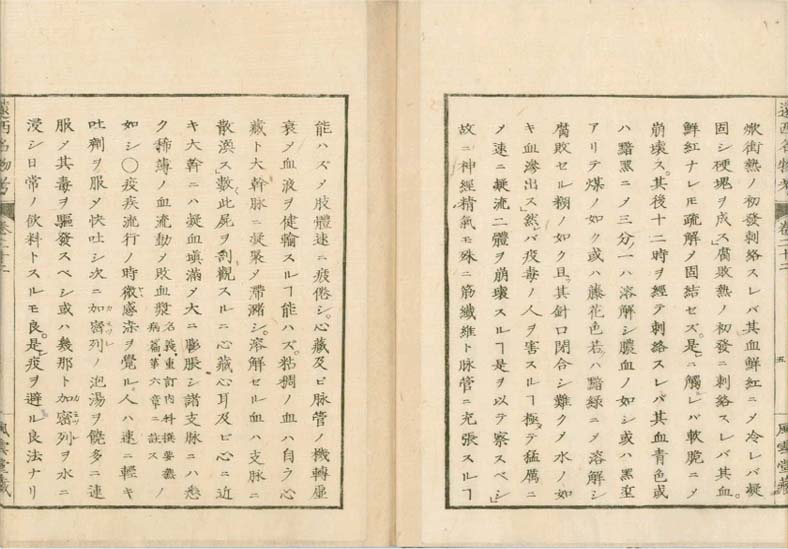 焮衝熱ノ初發刺絡スレバ其血鮮紅ニ〆冷レバ凝
固シ硬塊ヲ成ス」腐敗熱ノ初發ニ刺絡スレバ其血
鮮紅ナレモ疏解〆固結セズ。是ニ觸レバ軟脆ニ〆
崩壊ス。其後十二時ヲ經テ刺絡スレバ其血青色或
ハ黯黑ニ〆三分ノ一ハ溶解シ膿血ノ如シ或ハ黑
アリテ煤ノ如ク或ハ藤花色若ハ黯綠ニ〆溶解シ
腐敗セル糊ノ如ク且其針口閉合シ難ク〆水ノ如
キ血滲出ス」然バ疫毒ノ人ヲ害スルヿ極テ猛厲ニ
〆速ニ凝流二體ヲ崩壊スルヿ是ヲ以テ察スベシ」
故ニ神經精氣モ殊ニ筋纖維ト脉管ニ充張スルヿ
遠西名物考
卷二十二
五
風雲堂藏
能ハズ〆肢體速ニ疲倦シ。心藏及ビ脉管ノ機轉虛
衰〆血液ヲ健輸スルヿ能ハズ。粘稠ノ血ハ自ラ心
藏ト大幹脉ニ凝聚〆滯瀦シ。溶解セル血ハ支脉ニ
散渙ス」數此屍ヲ剖觀スルニ心藏心耳及ビ心ニ近
キ大幹ニハ凝血塡滿〆大ニ膨脹シ諸支脉ニハ悉
ク稀薄ノ血流動〆敗血漿名義重訂内科撰要熱ノ病篇第六章ニ註ス
如シ〇疫疾流行ノ時微感染ヲ覺ル人ハ速ニ輕キ
吐劑ヲ服〆快吐シ次ニ加密列ノ泡湯ヲ饒多ニ連
服〆其毒ヲ驅發スベシ或ハ幾那ト加密列ヲ水ニ
浸シ日常ノ飲料トスルモ良。是疫ヲ避ル良法ナリ
遠西名物考
卷二十二
風雲堂藏